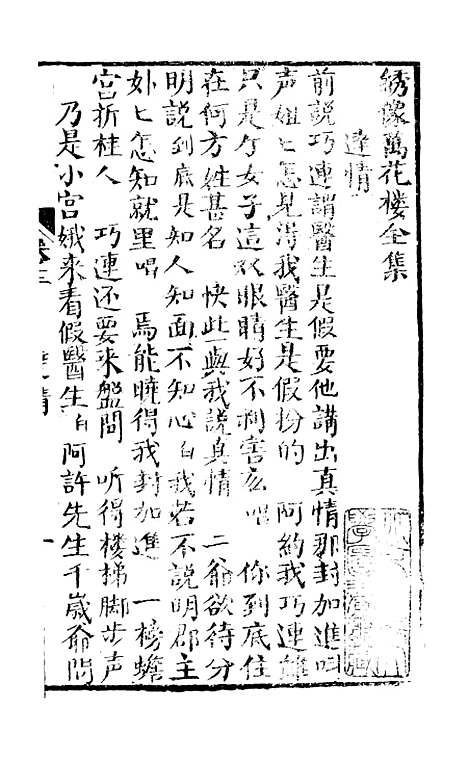 綉像萬花楼全集
達情
前說巧連謂醫生是假要他講出真情那封加進叫
声姐匕怎見淂我醫生是假扮的　阿約我巧連雖
只是个女子這双眼睛好不利害　唱　你到底住
在何方姓甚名　快此與我説真情　二爺欲待分
明説到底是知人知面不知心白我若不説明郡主
外匕怎知就里唱　焉能曉得我封加進　一榜蟾
宫折桂人　巧連还要来盤問　听得楼梯脚步声
乃是小宫娥来看假醫生白阿許先生千歲爺問
卷三　情　一